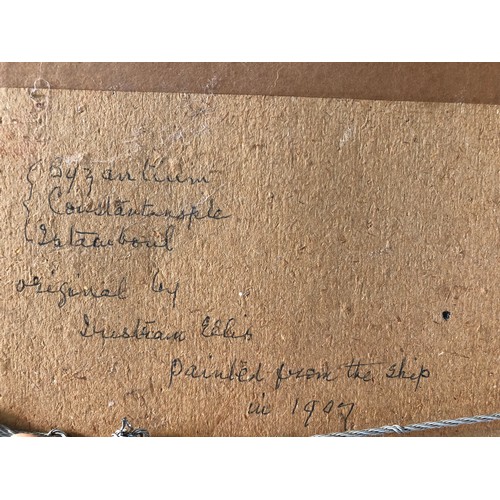 { Byzantium
{ Constantinople
{ Istamboul
original by
Tristram Ellis
Painted from the ship
in 1907